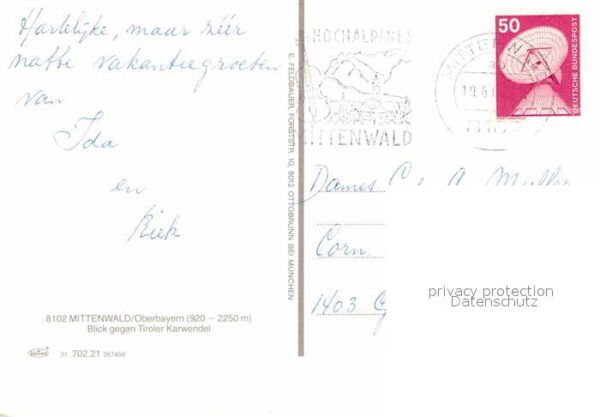 Hartelijke, maar zéér
natte vakantiegroeten
van
Ida
en
Riek
8102 MITTENWALD/Oberbayern (920 – 2250 m)
Blick gegen Tiroler Karwendel
31. 702.21 267458
E. FELDBAUER, FORSTSTR. 10, 8012 OTTOBRUNN BEI MÜNCHEN
HOCHALPINES
MITTENWALD
MITTENW
19.6.
50
DEUTSCHE BUNDESPOST
Dames
Corn
1403
privacy protection
Datenschutz